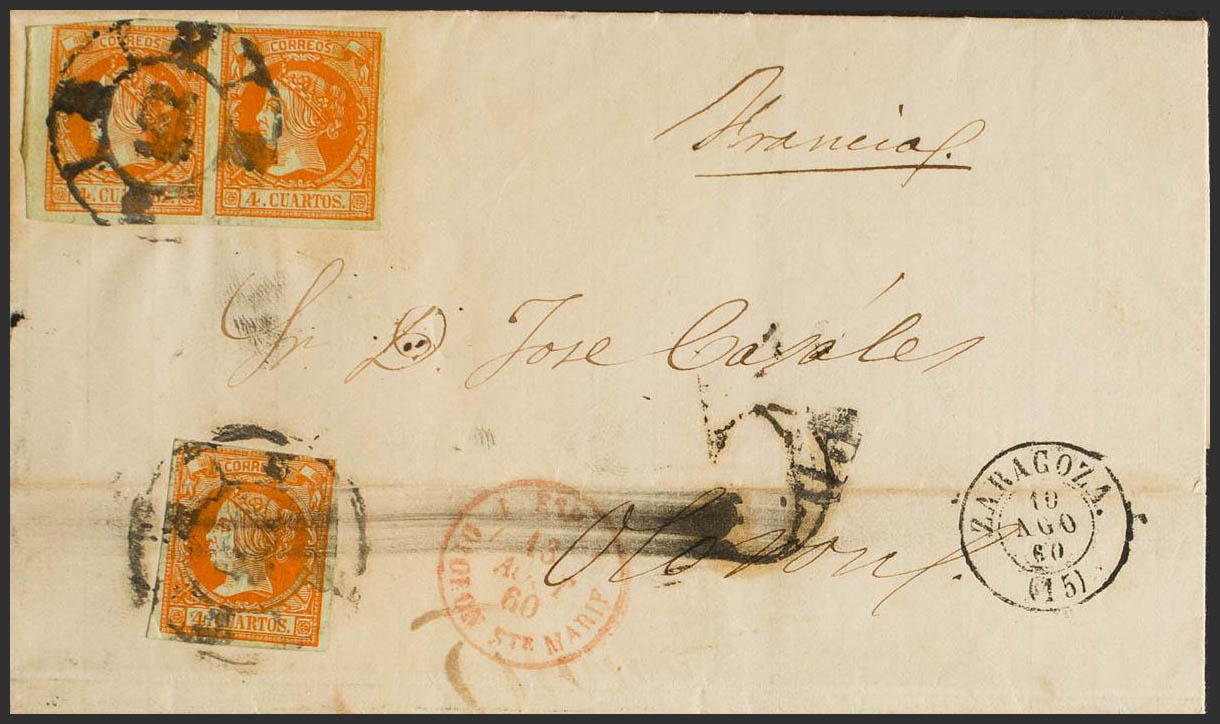 CORREOS CORREOS
4. CUARTOS.
Francia.
Sr. D. Jose Casáles
CORREOS
4. CUARTOS.
Oloron
60
STE MARIE
ZARAGOZA.
10
AGO
60
(15)